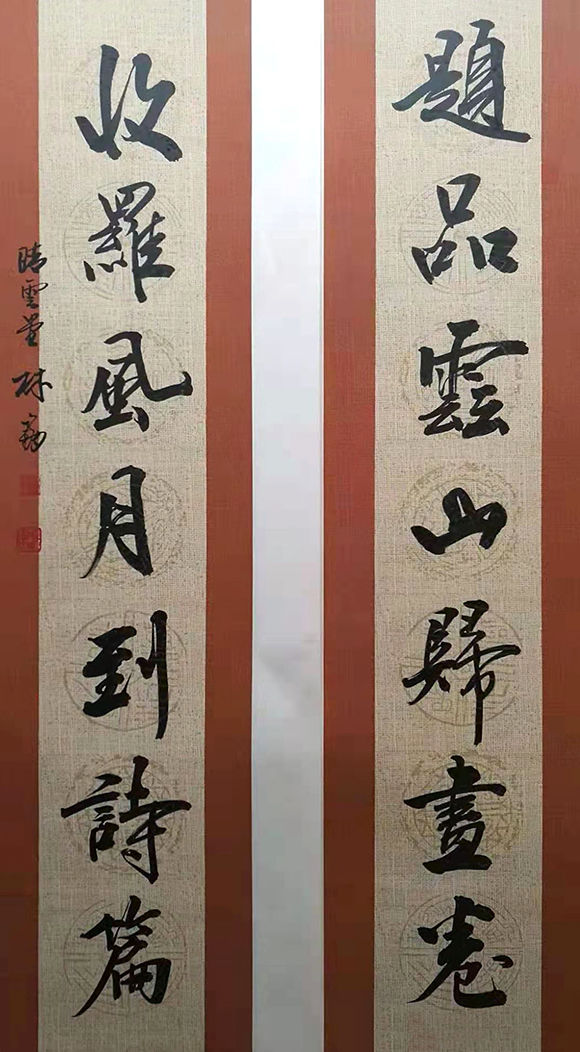 題品雲山歸畫卷
收羅風月到詩篇
晴雲堂 林勐